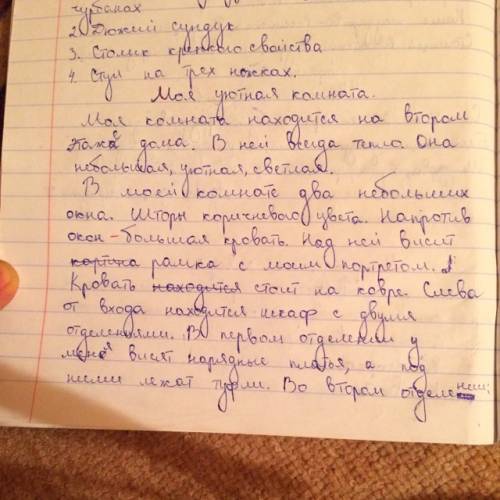 чурбанах
2. Дюжий сундук
3. Столик крепкого свойства
4. Стул на трех ножках.
Моя уютная комната.
Моя комната находится на втором
этаже дома. В ней всегда тепло. Она
небольшая, уютная, светлая.
В моей комнате два небольших
окна. Шторы коричневого цвета. Напротив
окон - большая кровать. Над ней висит
картина рамка с моим портретом.
Кровать находится стоит на ковре. Слева
от входа находится шкаф с двумя
отделениями. В первом отделении у
меня висят нарядные платья, а под
ними лежат туфли. Во втором отделе
нии: